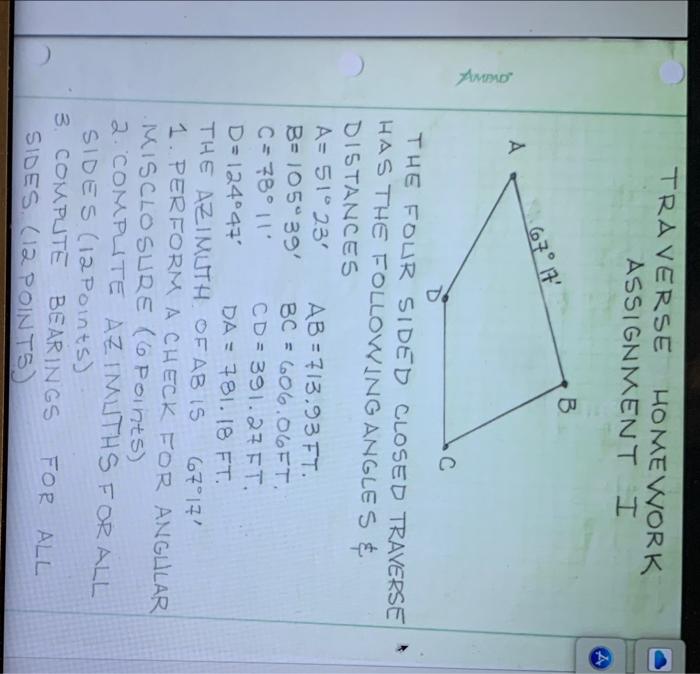 AMPAD
TRAVERSE HOMEWORK
ASSIGNMENT I
A
67°17'
B
D
C
THE FOUR SIDED CLOSED TRAVERSE
HAS THE FOLLOWING ANGLES &
DISTANCES
A = 51°23' AB = 713.93 FT.
B = 105°39' BC = 606.06 FT.
C = 78°11' CD = 391.27 FT.
D = 124°47' DA = 781.18 FT.
THE AZIMUTH OF AB IS 67°17'
1. PERFORM A CHECK FOR ANGULAR
MISCLOSURE (6 Points)
2. COMPUTE AZIMUTHS FOR ALL
SIDES (12 Points)
3. COMPUTE BEARINGS FOR ALL
SIDES. (12 POINTS)